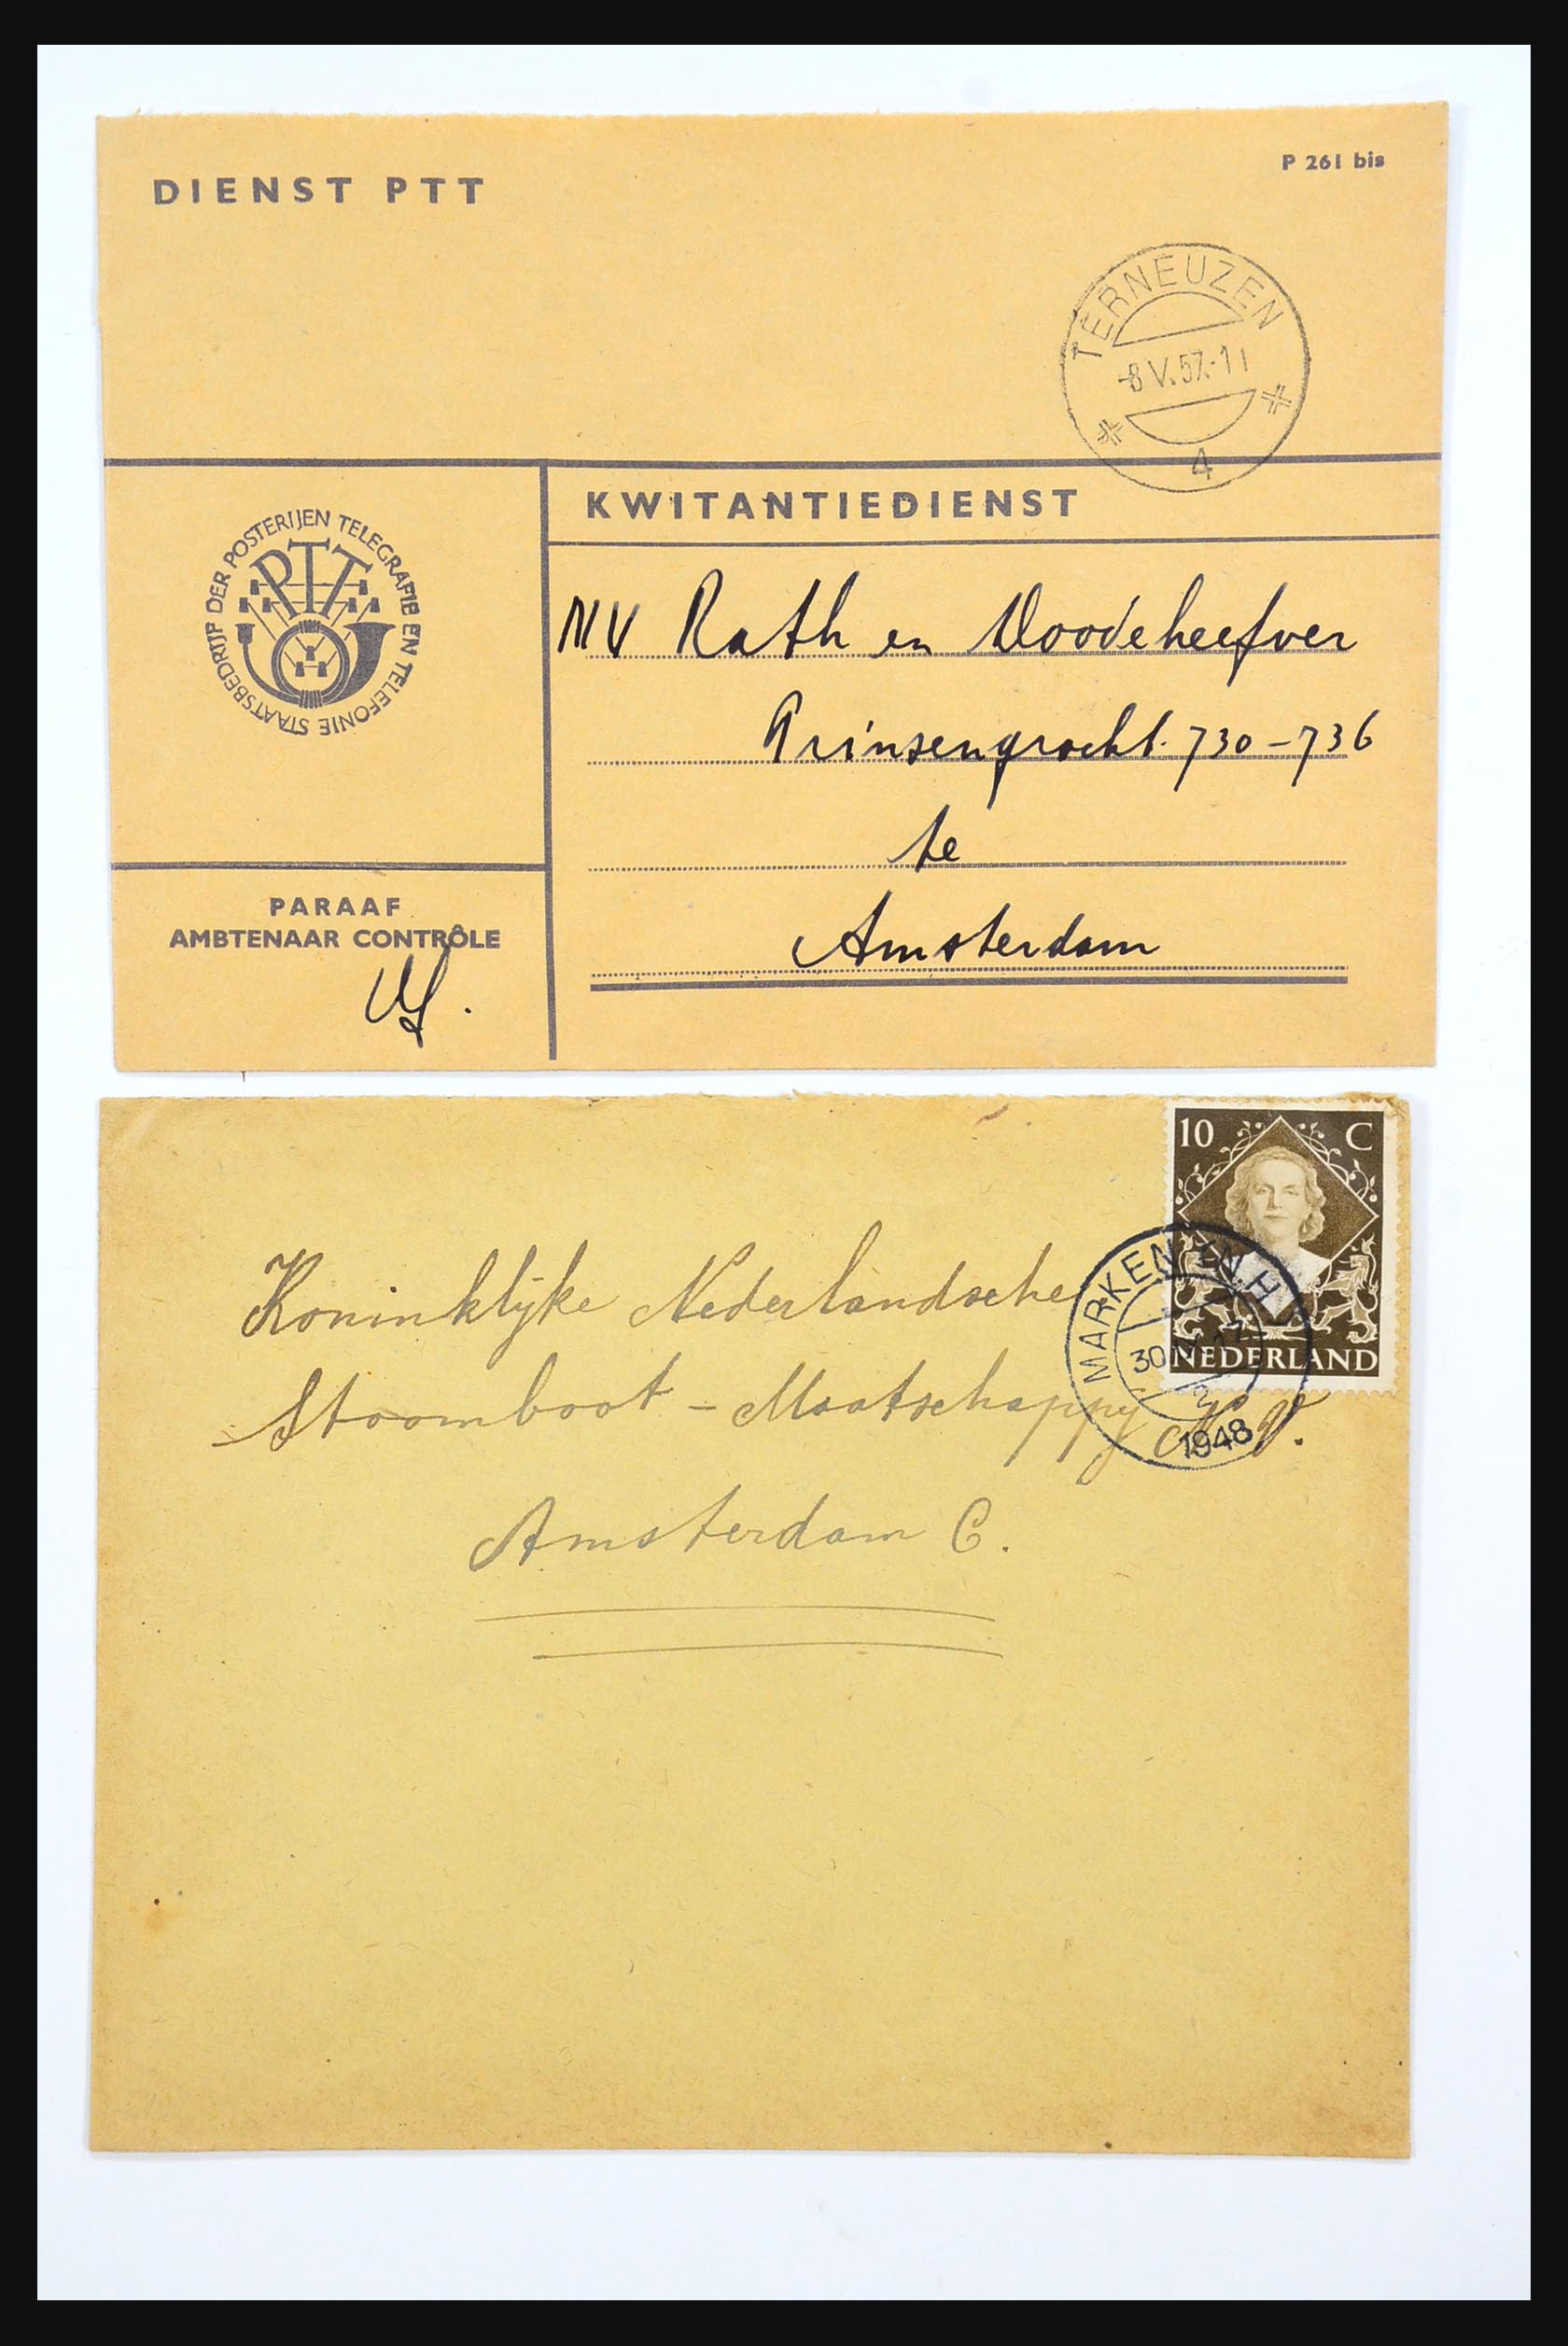 DIENST PTT
P 261 bis
TERNEUZEN
-8 V.57.-11
4
KWITANTIEDIENST
STAATSBEDRIJF DER POSTERIJEN TELEGRAFIE EN TELEFONIE
PTT
NV Rath en Doodeheefver
Prinsengracht. 730-736
te
Amsterdam
PARAAF
AMBTENAAR CONTRÔLE
10 C
NEDERLAND
MARKEN (N.H.)
30
1948
Koninklijke Nederlandsche
Stoomboot - Maatschappij N.V.
Amsterdam C.